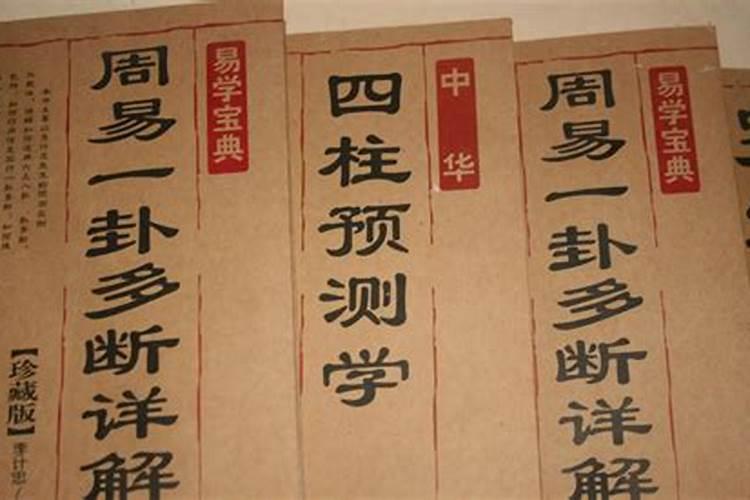 易学宝典
周易一卦多断详解
【珍藏版】
李计忠
中华
四柱预测学
易学宝典
周易一卦多断详解